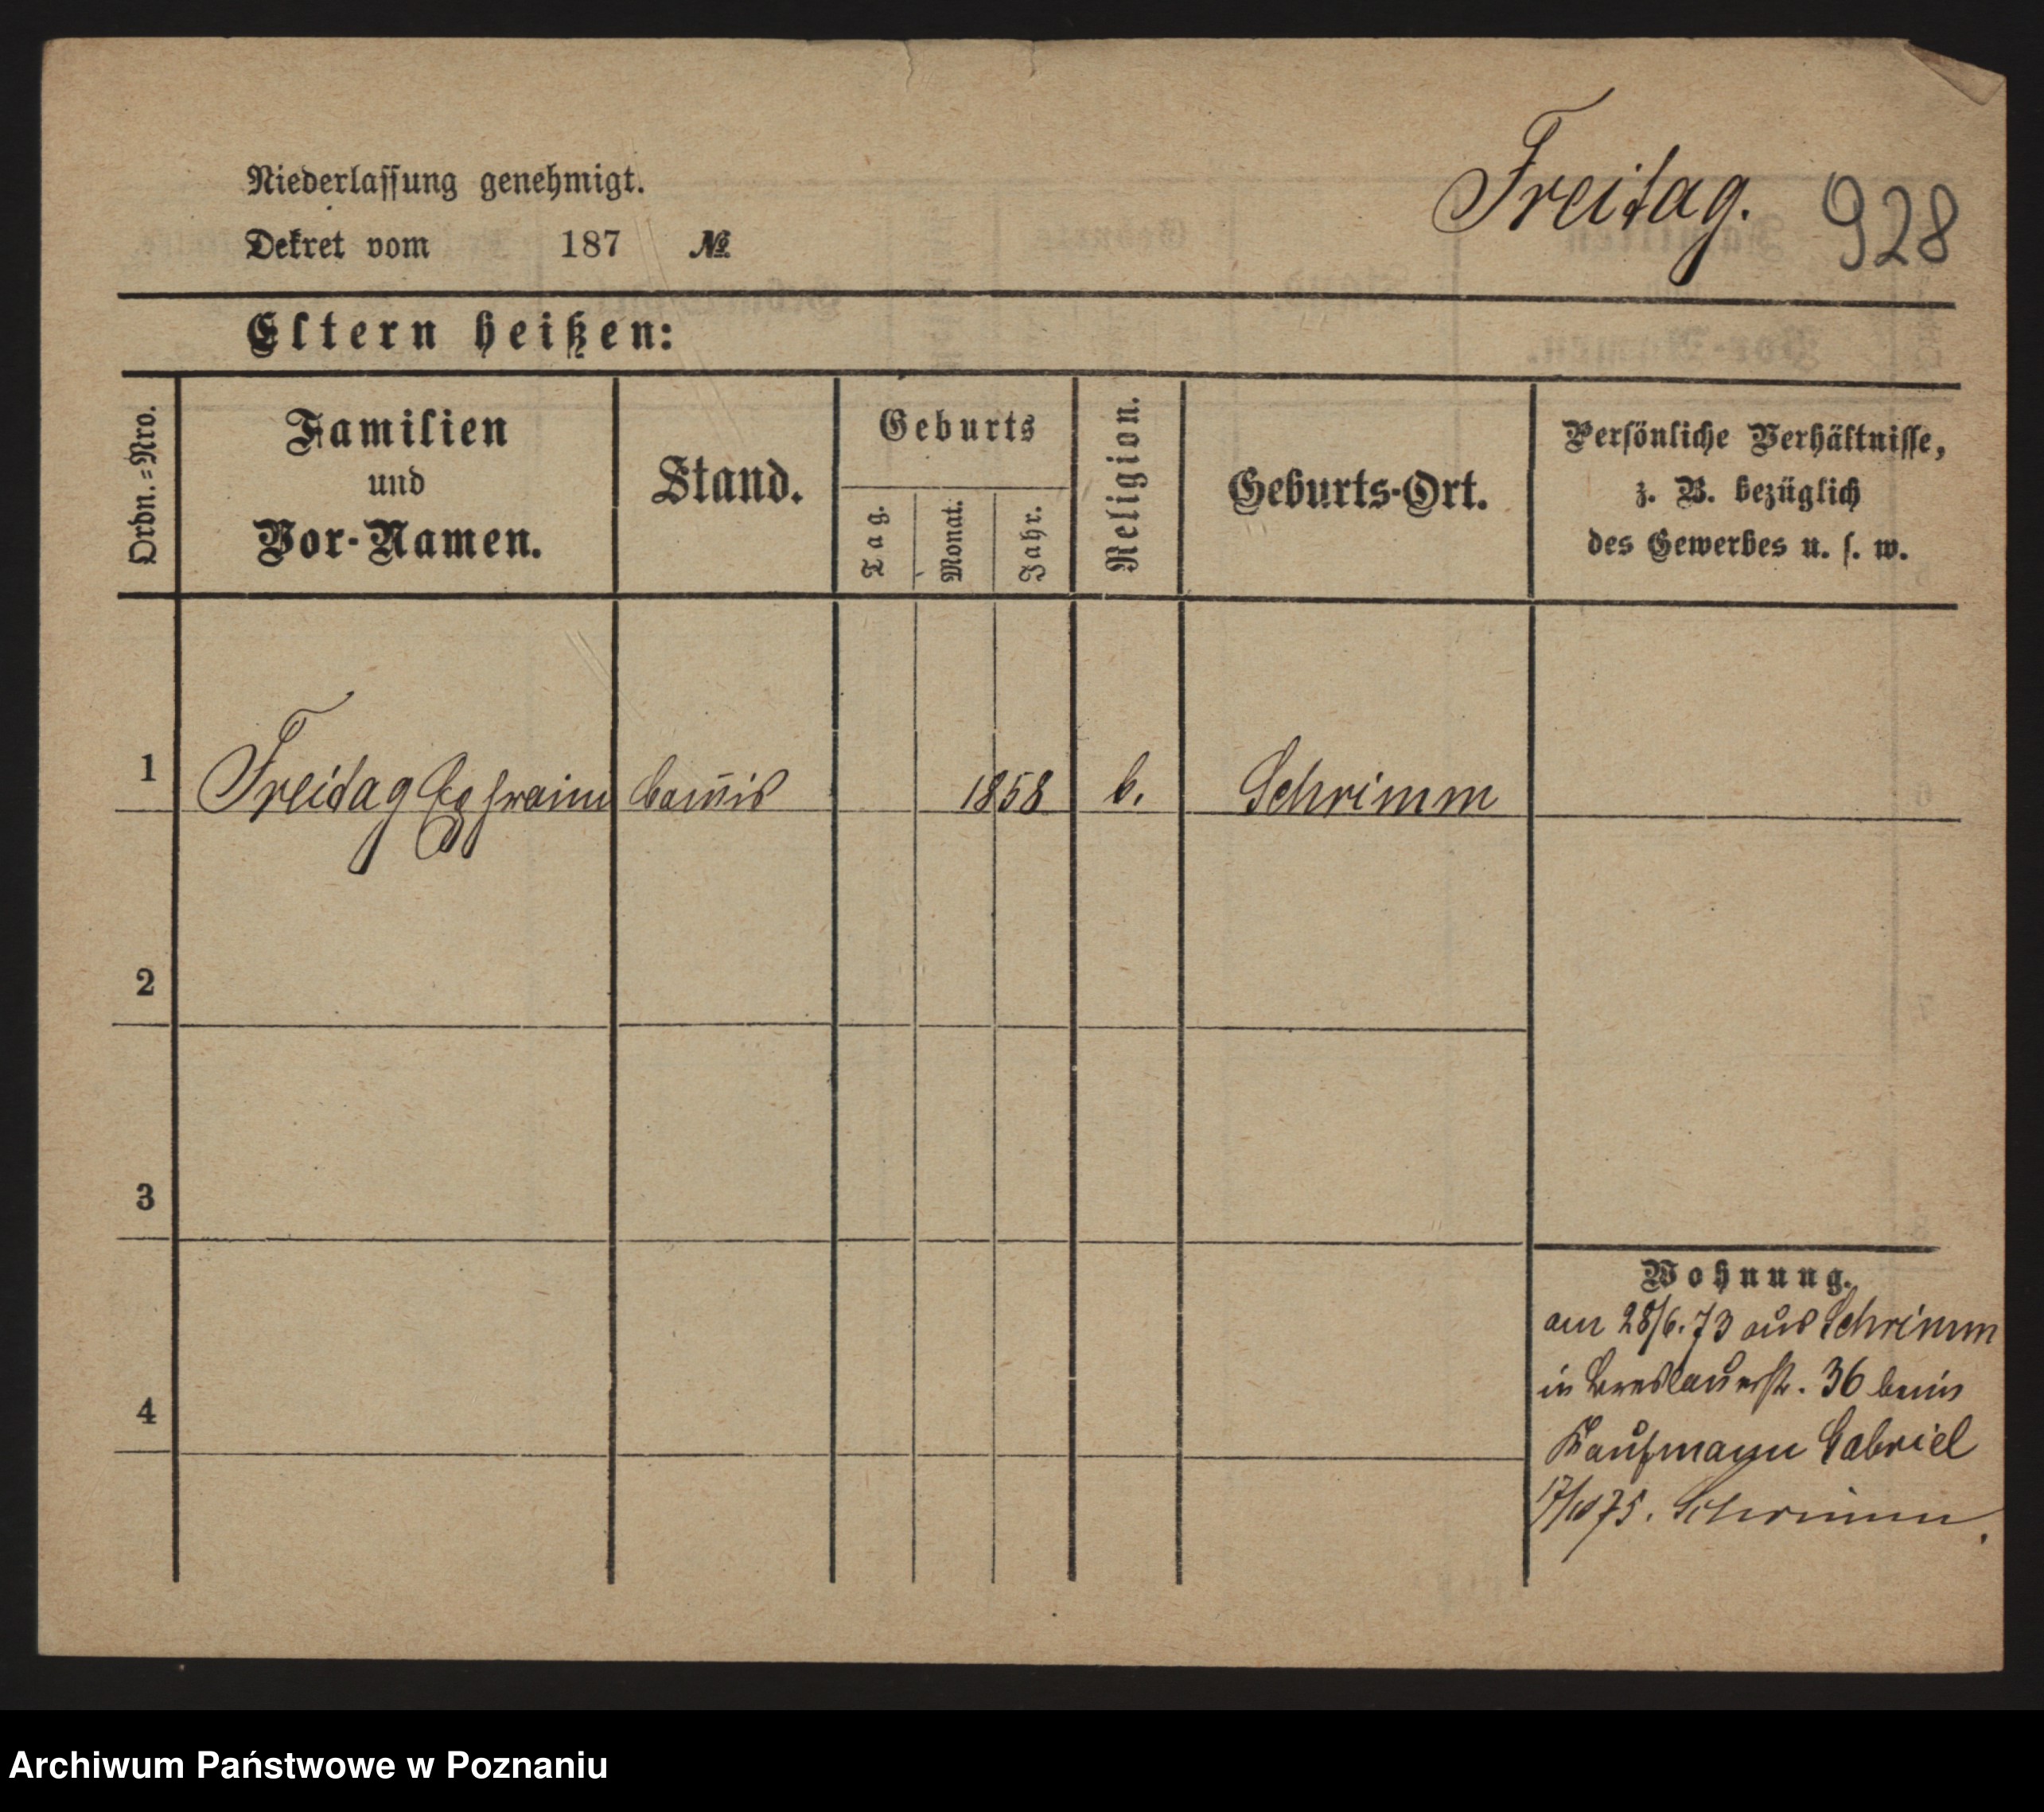 Freitag. 928
Niederlassung genehmigt.
Dekret vom 187 №
Eltern heißen:
Ordn.=Nro.
Familien
und
Vor-Namen.
Stand.
Geburts
Tag.
Monat.
Jahr.
Religion.
Geburts-Ort.
Persönliche Verhältnisse,
z. B. bezüglich
des Gewerbes u. s. w.
1 Freitag Ephraim Com̄is 1858 Schrimm
2
3
4
Wohnung.
am 28/6.73 aus Schrimm
in Breslauerstr. 36 beim
Kaufmann Gabriel
75. Schrimm.
Archiwum Państwowe w Poznaniu